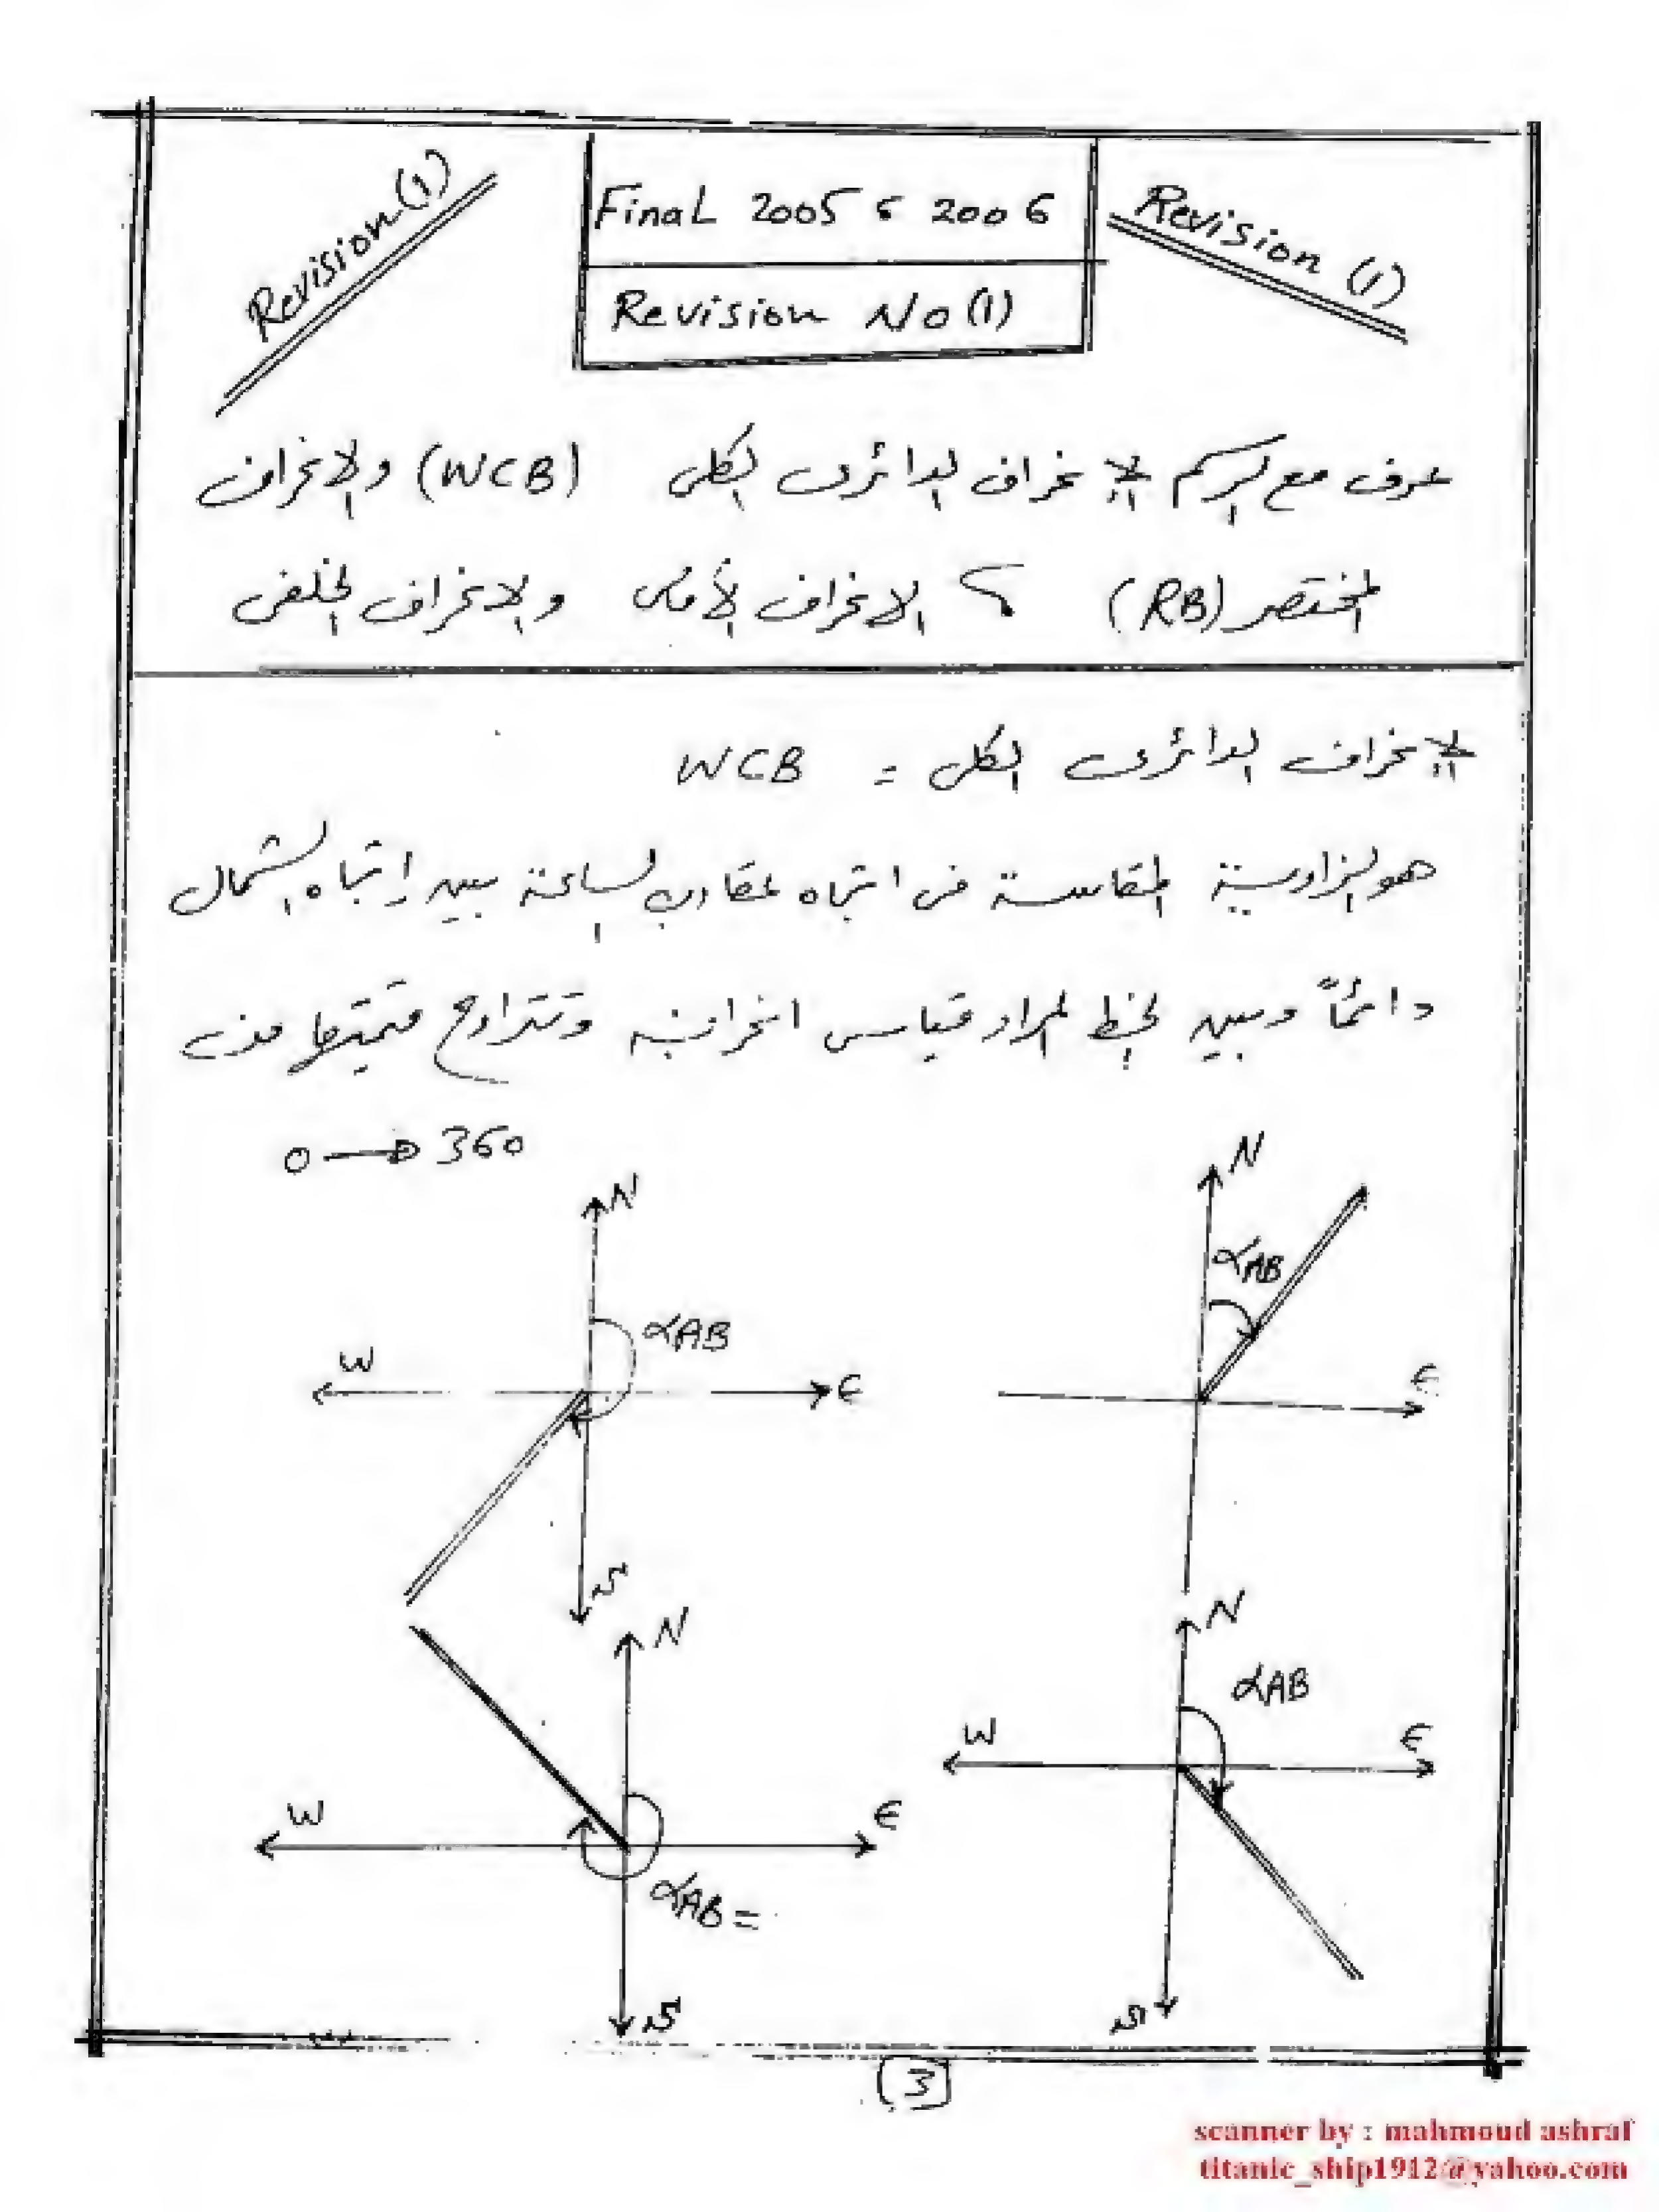 Revision (1)
Final 2005 ، 2006
Revision No (1)
Revision (1)
عرف مع الرسم الانحراف الدائرى الكلى (WCB) والانحراف
المختصر (RB) ، الانحراف الأمامى والانحراف الخلفى
الانحراف الدائرى الكلى = WCB
هو الزاوية المقاسة فى اتجاه عقارب الساعة بين إتجاه الشمال
دائماً وبين الخط المراد قياس انحرافه وتتراوح قيمتها من
0 → 360
N
αAB
W
E
S
N
αAB
E
N
W
E
αAB =
S
N
αAB
W
E
S
(3)
scanner by : mahmoud ashraf
titanic_ship1912@yahoo.com